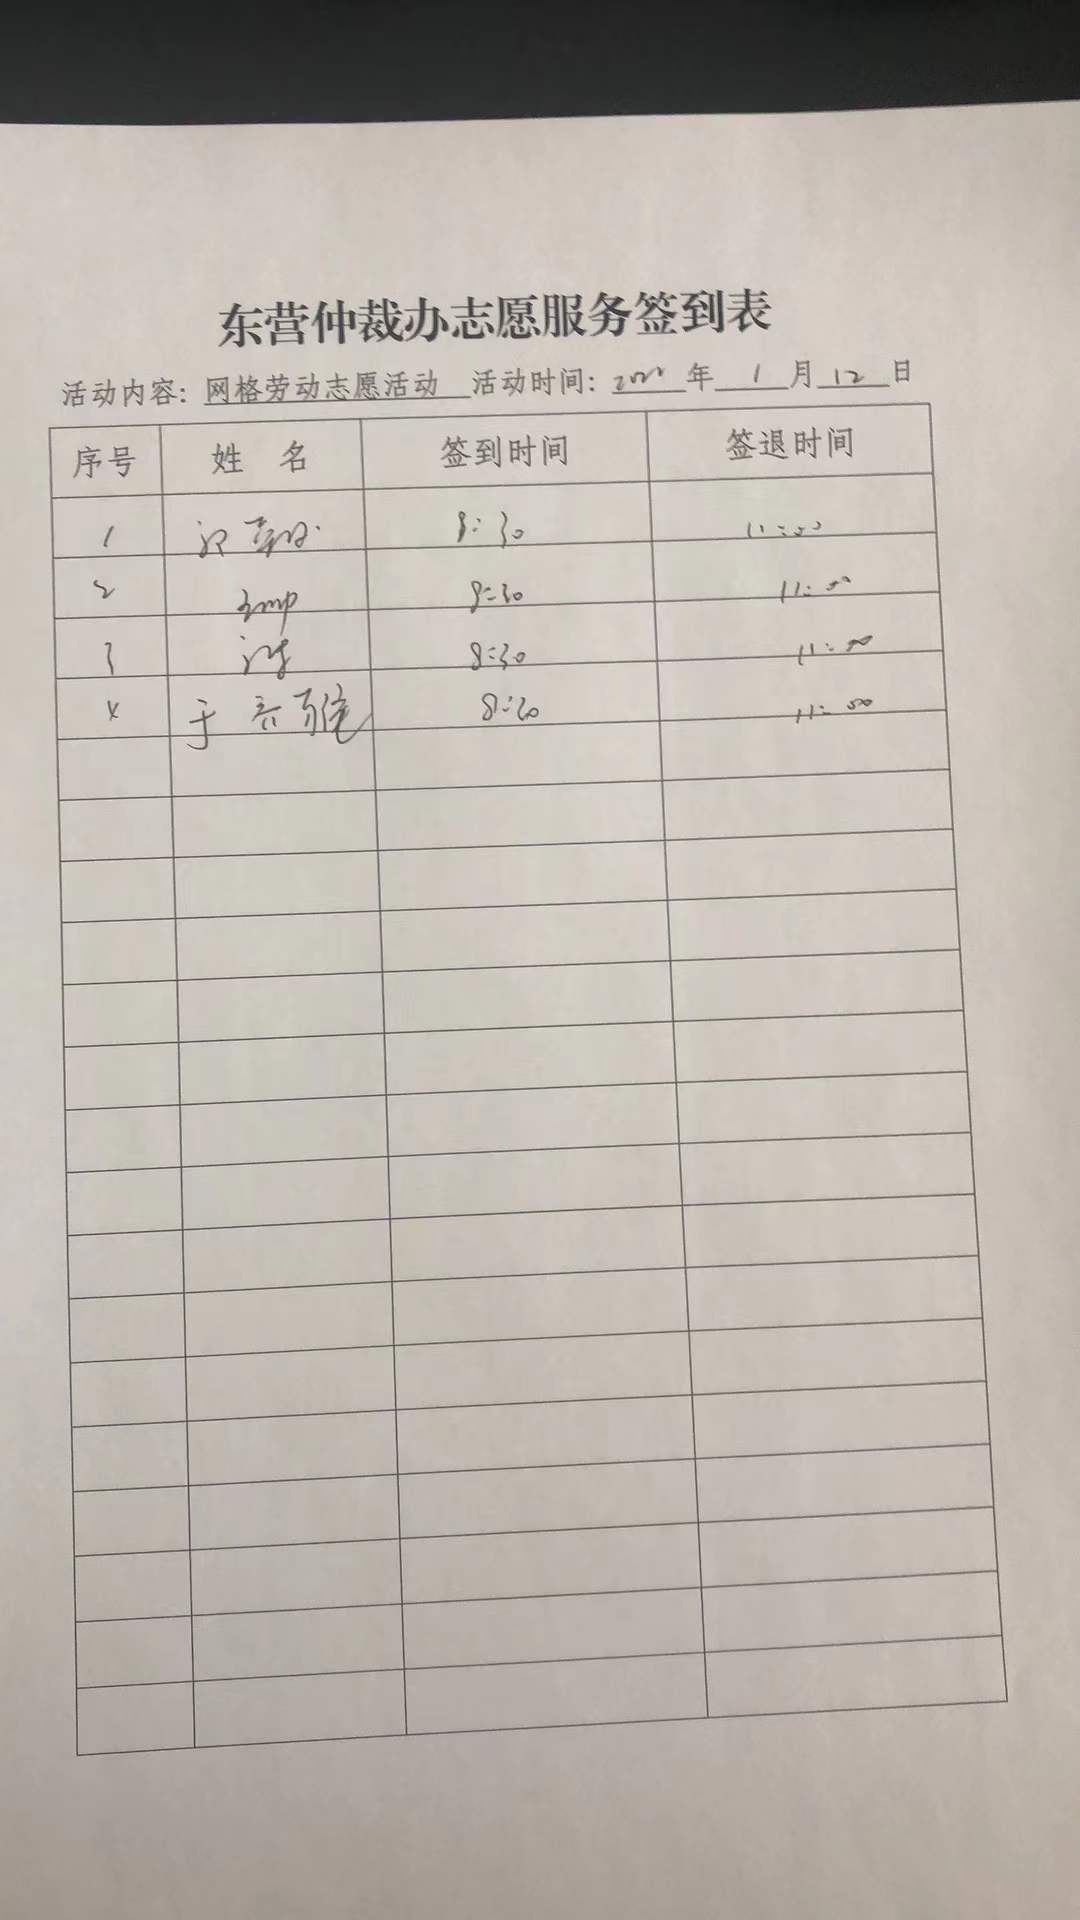 东营仲裁办志愿服务签到表
活动内容：网格劳动志愿活动 活动时间：年 1 月 12 日
序号 姓 名 签到时间 签退时间
1 8:30 11:00
2 8:30 11:00
3 8:30 11:00
4 于 8:30 11:00